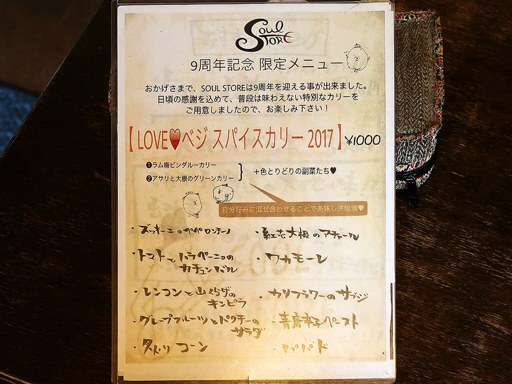 Soul
STORE
9周年記念 限定メニュー
おかげさまで、SOUL STOREは9周年を迎える事が出来ました。
日頃の感謝を込めて、普段は味わえない特別なカリーを
ご用意しましたので、お楽しみ下さい！
【 LOVE♥ベジ スパイスカリー 2017 】¥1000
❶ラム梅ビンダルーカリー
❷アサリと大根のグリーンカリー
＋色とりどりの副菜たち♥
自分好みに混ぜ合わせることで美味しさ倍増♥
・ズッキーニのペペロンチーノ
・トマトとハラペーニョの
カチュンバル
・レンコンと山くらげの
キンピラ
・グレープフルーツとパクチーの
サラダ
・タンドリコーン
・紅芯大根のアチャール
・ワカモーレ
・カリフラワーのサブジ
・青唐辛子ペースト
・パパド